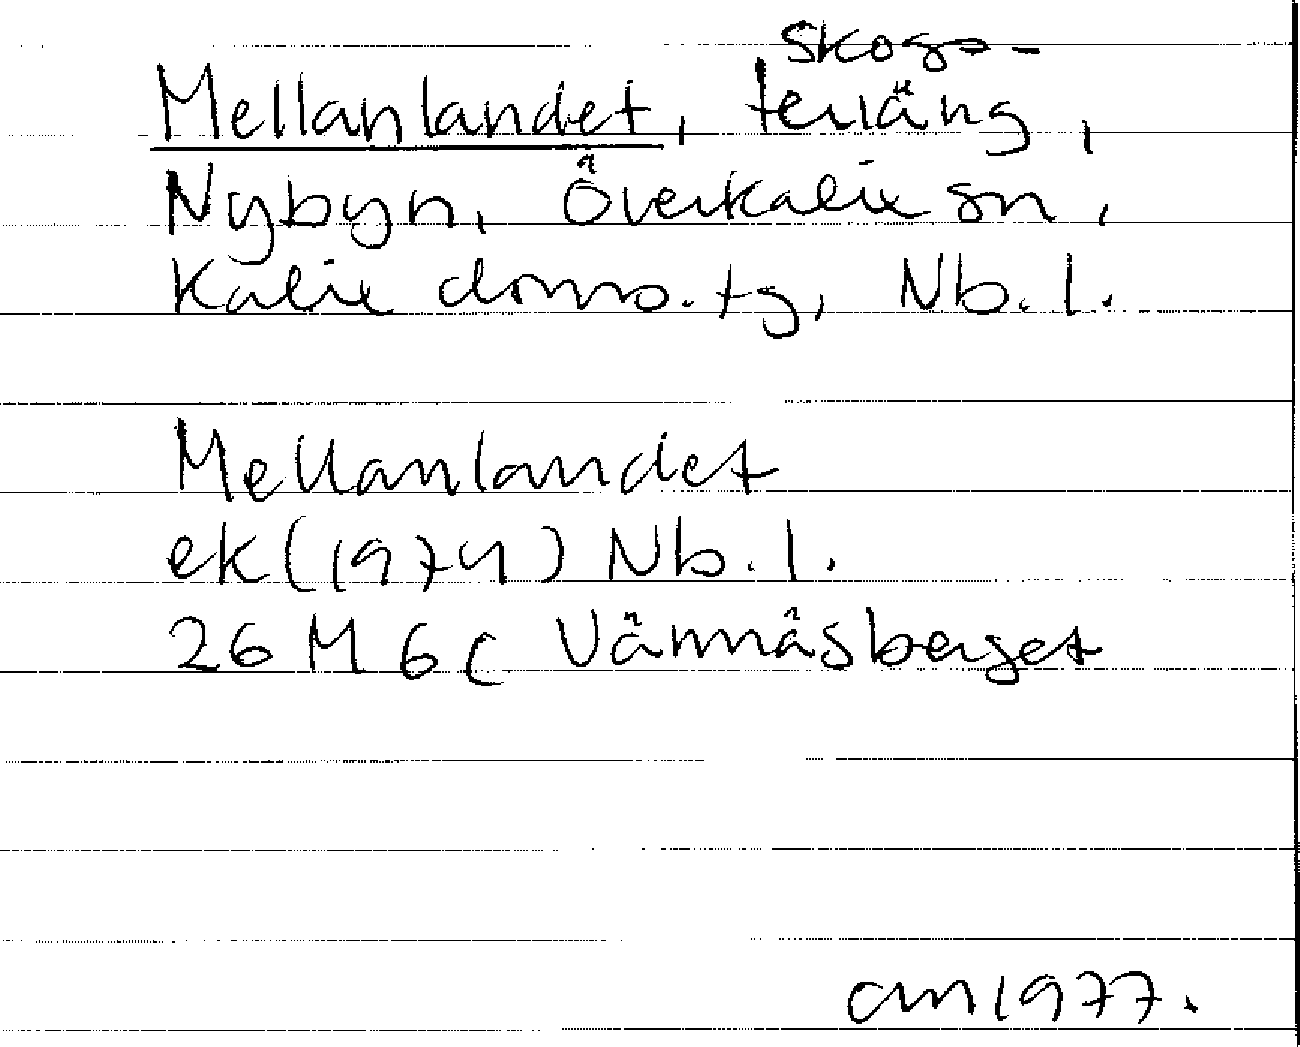 skogs-
Mellanlandet, terräng,
Nybyn, Överkalix sn,
Kalix doms.tg, Nb.l.
Mellanlandet
ek(1974) Nb.l.
26 M 6c Vännäsberget
am 1977.